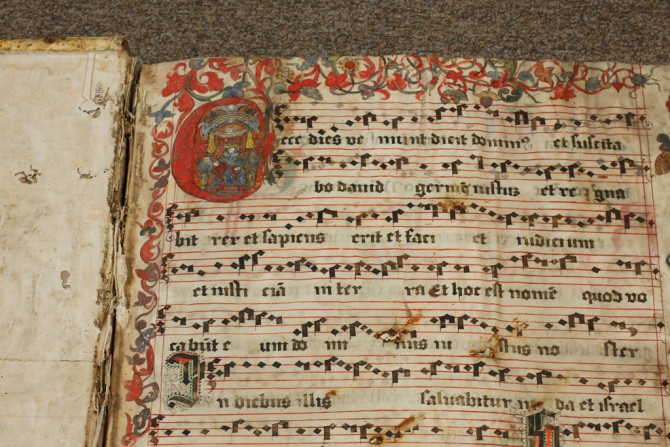 ecce dies ve niunt dicit domin⁹ et suscita
bo dauid germē iustuz et reḡna
bit rex et sapiens erit et faci et iudicium
et iusti ciā in ter ra Et hoc est nomē quod vo
cabūt e um do mi nus iu stus no ster
In diebus illis saluabitur iu da et israel